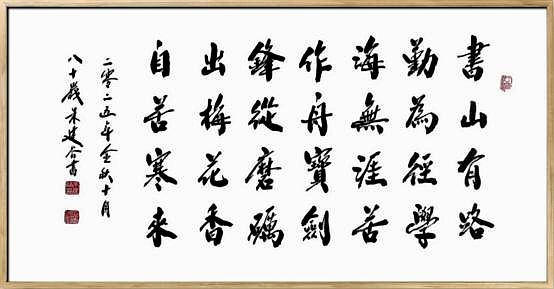 書山有路
勤為徑學
海無涯苦
作舟寶劍
鋒從磨礪
出梅花香
自苦寒來
二零二五年金秋十月
八十歲建書